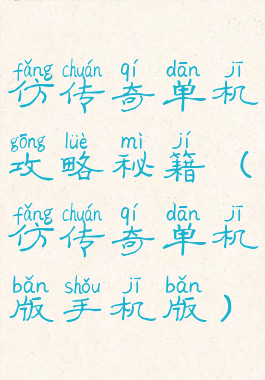 fǎng chuán qí dān jī
仿传奇单机
gōng lüè mì jí
攻略秘籍（
fǎng chuán qí dān jī
仿传奇单机
bǎn shǒu jī bǎn
版手机版）